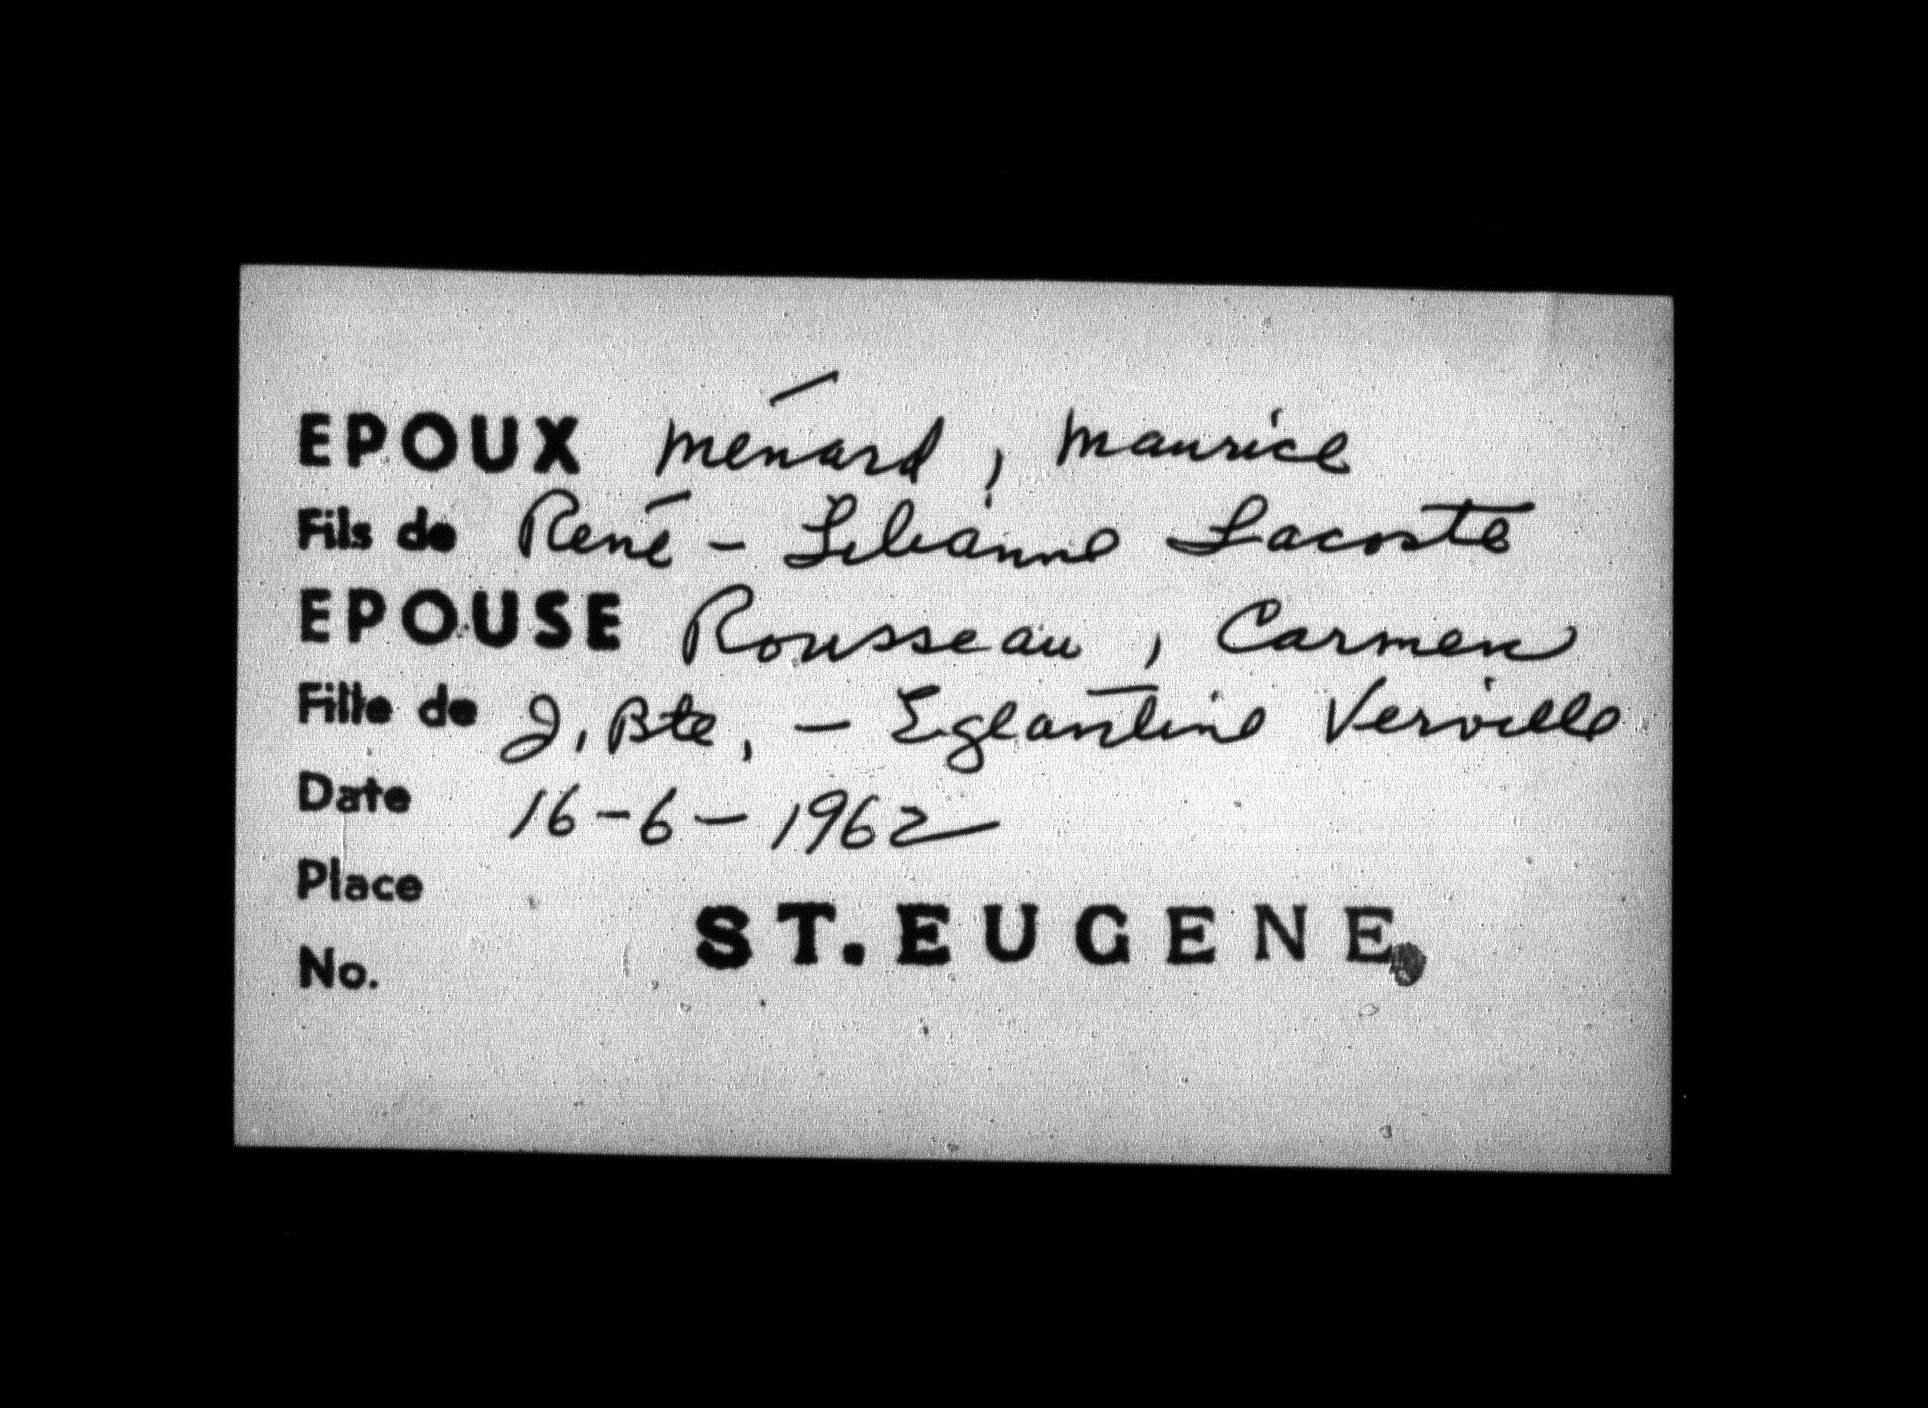 EPOUX Ménard, Maurice
Fils de René - Lilianne Lacoste
EPOUSE Rousseau, Carmen
Fille de J. Bte, - Eglantine Verville
Date 16-6-1962
Place
ST. EUGENE
No.